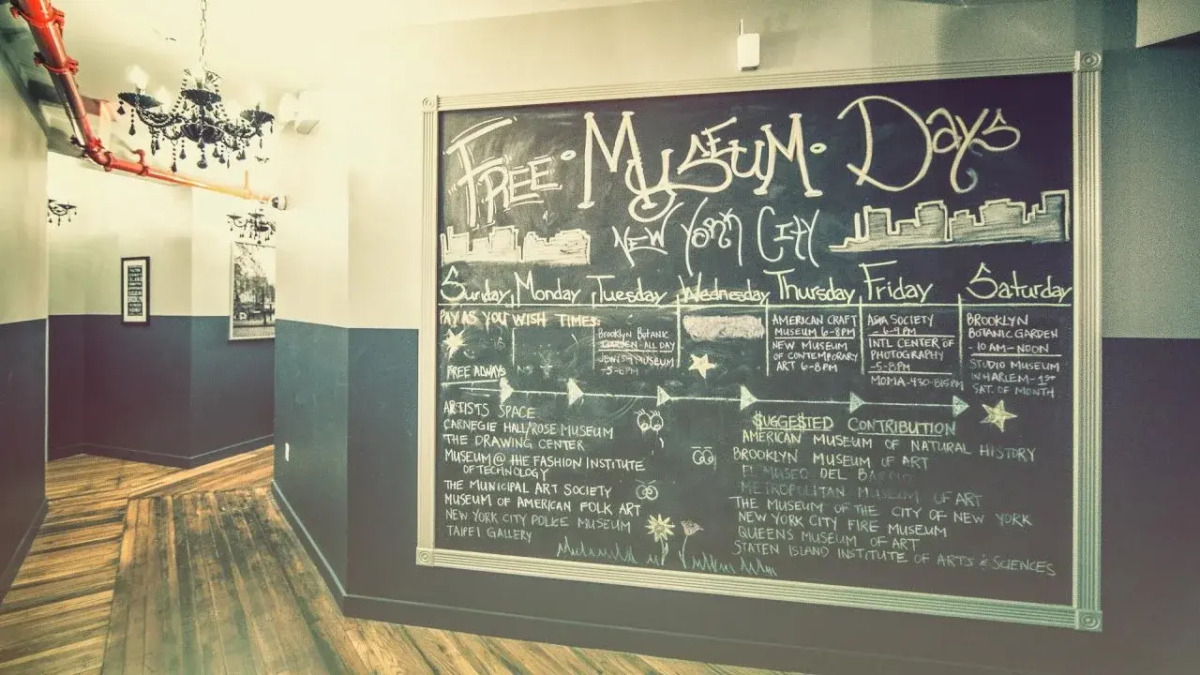 FREE · MUSEUM · DAYS
NEW YORK CITY
Sunday Monday Tuesday Wednesday Thursday Friday Saturday
PAY AS YOU WISH TIMES:
BROOKLYN BOTANIC
GARDEN - ALL DAY
JEWISH MUSEUM
-5-8PM
AMERICAN CRAFT
MUSEUM 6-8PM
NEW MUSEUM
OF CONTEMPORARY
ART 6-8PM
ASIA SOCIETY
6-9PM
INTL CENTER OF
PHOTOGRAPHY
-5-8PM
MOMA-430-815PM
BROOKLYN
BOTANIC GARDEN
-10 AM-NOON
STUDIO MUSEUM
IN HARLEM-1ST
SAT. OF MONTH
FREE ALWAYS
ARTISTS SPACE
CARNEGIE HALL/ROSE MUSEUM
THE DRAWING CENTER
MUSEUM@ THE FASHION INSTITUTE
OF TECHNOLOGY
THE MUNICIPAL ART SOCIETY
MUSEUM OF AMERICAN FOLK ART
NEW YORK CITY POLICE MUSEUM
TAIPEI GALLERY
$UGGE$TED CONTRIBUTION
AMERICAN MUSEUM OF NATURAL HISTORY
BROOKLYN MUSEUM OF ART
EL MUSEO DEL BARRIO
METROPOLITAN MUSEUM OF ART
THE MUSEUM OF THE CITY OF NEW YORK
NEW YORK CITY FIRE MUSEUM
QUEENS MUSEUM OF ART
STATEN ISLAND INSTITUTE OF ARTS & SCIENCES